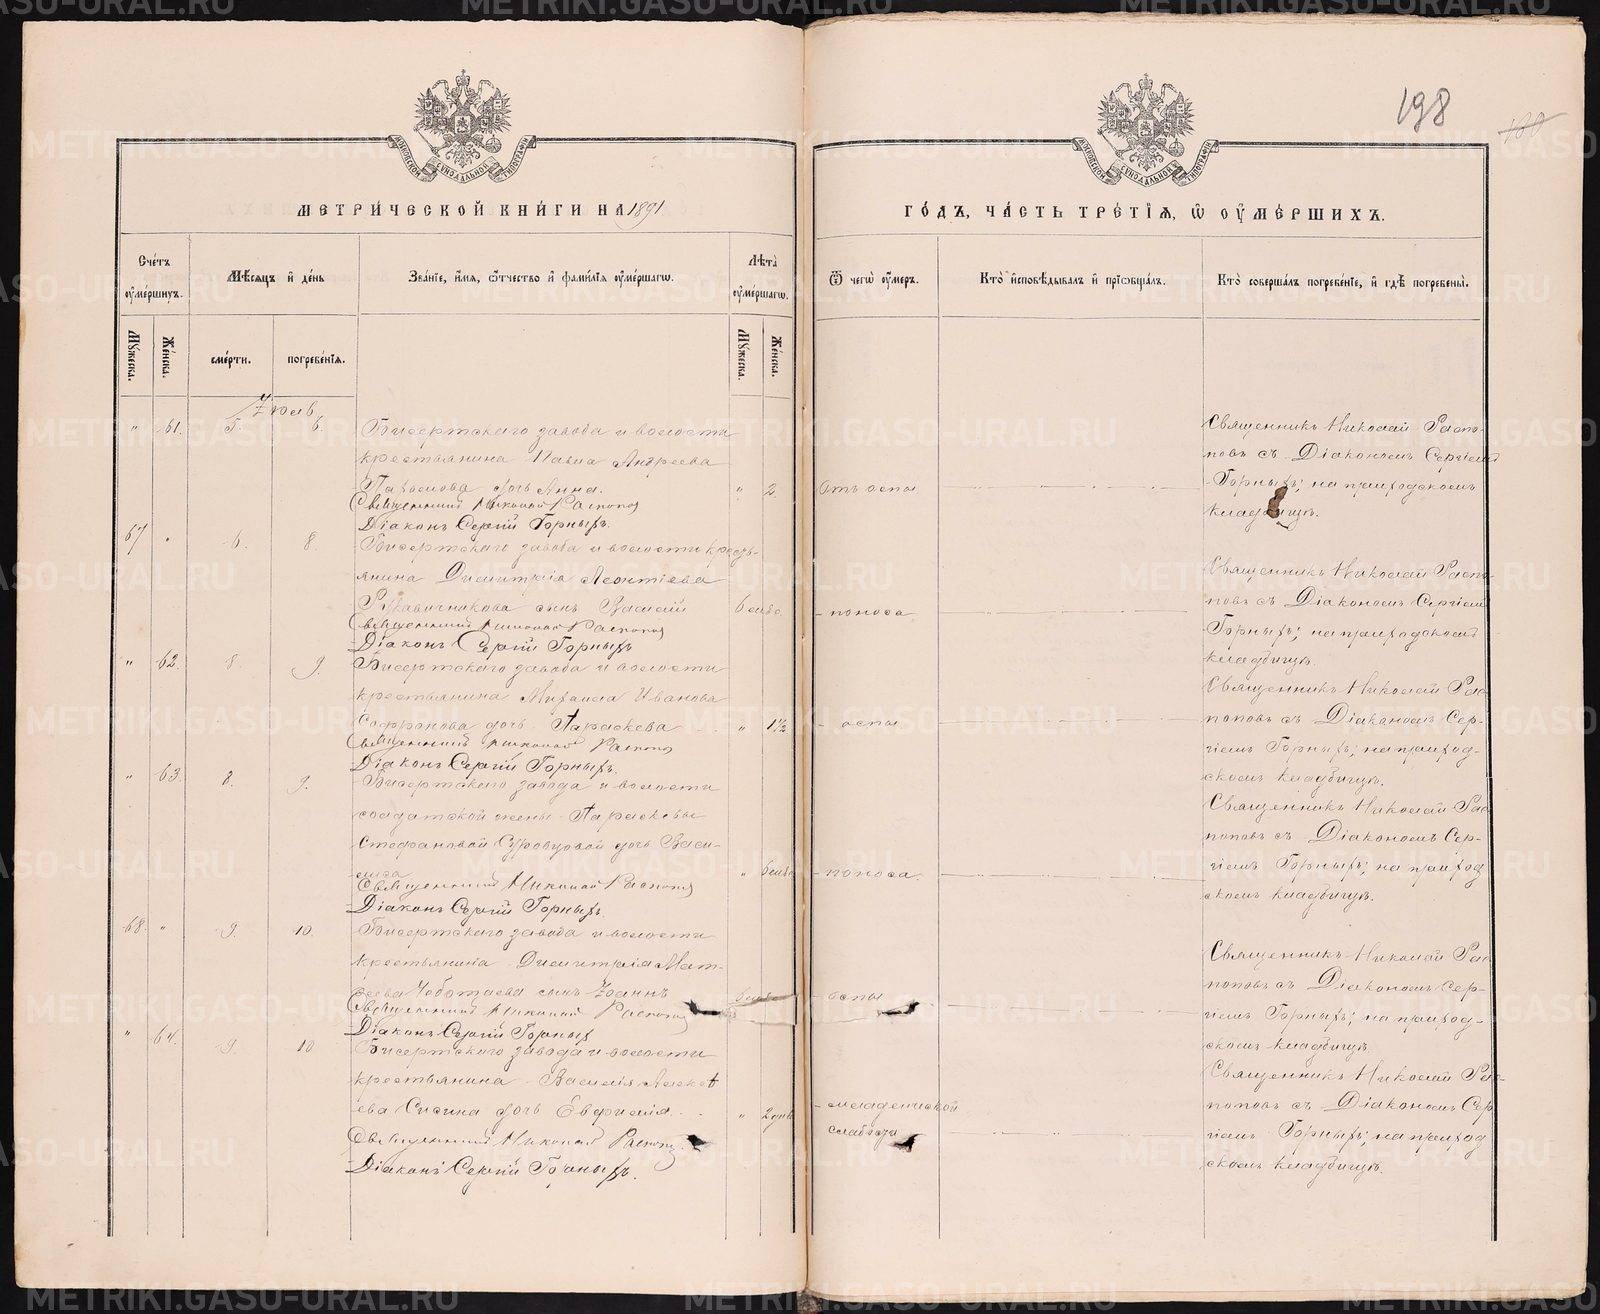 198
МЕТРИ́ЧЕСКОЙ КНИ́ГИ НА 1891
ГО́ДЪ, ЧА́СТЬ ТРЕ́ТІѦ, Ѽ ОУ҆МЕ́РШИХЪ.
Сче́тъ оу҆ме́ршихъ.
Мѣ́сѧцъ и҆ де́нь
Зва́нїе, и҆́мѧ, ѻ҆́тчество и҆ фами́лїѧ оу҆ме́ршагѡ.
Лѣ́та оу҆ме́ршагѡ.
Ѿ чегѡ̀ оу҆́меръ.
Кто̀ и҆сповѣ́дывалъ и҆ прїѡбща́лъ.
Кто̀ соверша́лъ погребе́нїе, и҆ гдѣ̀ погребены̀.
Му́жеска.
Же́нска.
сме́рти.
погребе́нїѧ.
Му́жеска.
Же́нска.
Іюль
" 61. 5. 6. Бисертскаго завода и волости
крестьянина Павла Андреева
дочь Анна. " 2 Отъ оспы
Священникъ Николай Распоповъ
Діаконъ Сергій Горныхъ.
Священникъ Николай Распо-
повъ съ Діакономъ Сергіемъ
Горныхъ; на приходскомъ
кладбищѣ.
67 " 6. 8. Бисертскаго завода и волости кресть-
янина Димитрія Леонтіева
сынъ Василій 6 мѣс. - поноса
Священникъ Николай Распоповъ
Діаконъ Сергій Горныхъ
Священникъ Николай Распо-
повъ съ Діакономъ Сергіемъ
Горныхъ; на приходскомъ
кладбищѣ.
" 62. 8. 9. Бисертскаго завода и волости
крестьянина Михаила Иванова
Софронова дочь Параскева " 1½ - оспы
Священникъ Николай Распоповъ
Діаконъ Сергій Горныхъ.
Священникъ Николай Рас-
поповъ съ Діакономъ Сер-
гіемъ Горныхъ; на приход-
скомъ кладбищѣ.
" 63. 8. 9. Бисертскаго завода и волости
солдатской жены Параскевы
Стефановой Суровцовой дочь Васи-
лиса " 6 мѣс. - поноса.
Священникъ Николай Распоповъ
Діаконъ Сергій Горныхъ.
Священникъ Николай Рас-
поповъ съ Діакономъ Сер-
гіемъ Горныхъ; на приход
скомъ кладбищѣ.
68. " 9. 10. Бисертскаго завода и волости
крестьянина Димитрія Мат-
ѳеева Чеботаева сынъ Іоаннъ - оспы
Священникъ Николай Распоповъ
Діаконъ Сергій Горныхъ
Священникъ Николай Рас-
поповъ съ Діакономъ Сер-
гіемъ Горныхъ; на приход-
скомъ кладбищѣ.
" 64. 9. 10. Бисертскаго завода и волости
крестьянина Василія Алексѣ
ева Сисина дочь Евфимія " 2 дня - младенческой
слабости
Священникъ Николай Распоповъ.
Діаконъ Сергій Горныхъ.
Священникъ Николай Рас-
поповъ съ Діакономъ Сер
гіемъ Горныхъ; на приход
скомъ кладбищѣ.
METRIKI.GASO-URAL.RU